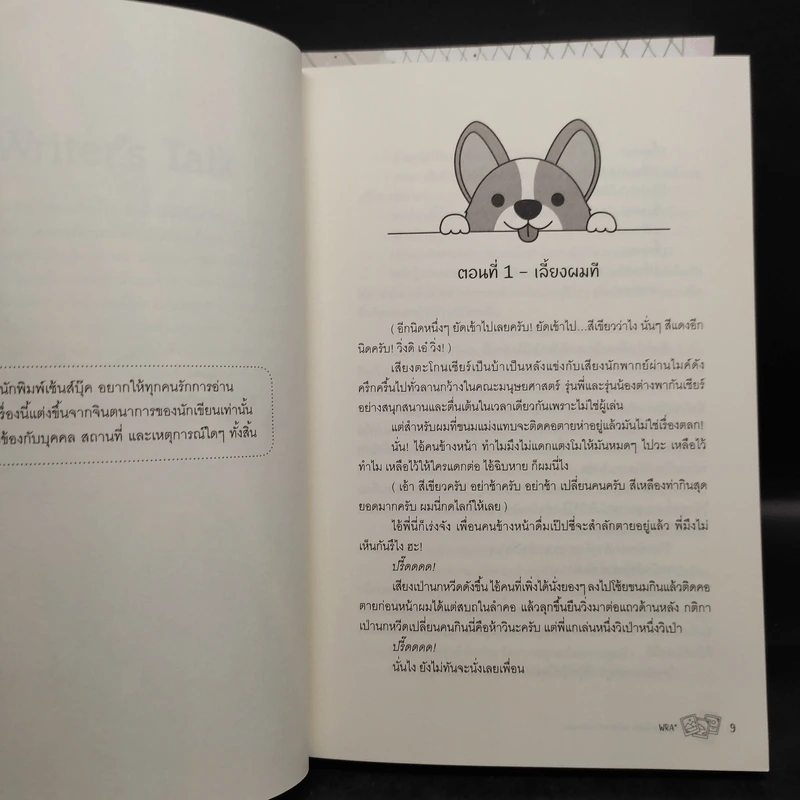 นักพิมพ์เซ้นส์บุ๊ค อยากให้ทุกคนรักการอ่าน
รื่องนี้แต่งขึ้นจากจินตนาการของนักเขียนเท่านั้น
ข้องกับบุคคล สถานที่ และเหตุการณ์ใดๆ ทั้งสิ้น
ตอนที่ 1 – เลี้ยงผมที
( อีกนิดหนึ่งๆ ยัดเข้าไปเลยครับ! ยัดเข้าไป...สีเขียวว่าไง นั่นๆ สีแดงอีก
นิดครับ! วิ่งดิ เอ๋ วิ่ง! )
เสียงตะโกนเชียร์เป็นบ้าเป็นหลังแข่งกับเสียงนักพากย์ผ่านไมค์ดัง
ครึกครื้นไปทั่วลานกว้างในคณะมนุษยศาสตร์ รุ่นพี่และรุ่นน้องต่างพากันเชียร์
อย่างสนุกสนานและตื่นเต้นในเวลาเดียวกันเพราะไม่ใช่ผู้เล่น
แต่สำหรับผมที่ขนมแม่งแทบจะติดคอตายห่าอยู่แล้วมันไม่ใช่เรื่องตลก!
นั่น! ไอ้คนข้างหน้า ทำไมมึงไม่แดกแตงโมให้มันหมดๆ ไปวะ เหลือไว้
ทำไม เหลือไว้ให้ใครแดกต่อ ไอ้ฉิบหาย ก็ผมนี่ไง
( เอ้า สีเขียวครับ อย่าช้าครับ อย่าช้า เปลี่ยนคนครับ สีเหลืองท่ากินสุด
ยอดมากครับ ผมนี่กดไลก์ให้เลย )
ไอ้พี่นี่ก็เร่งจัง เพื่อนคนข้างหน้าดื่มเป๊ปซี่จะสำลักตายอยู่แล้ว พี่มึงไม่
เห็นกันรึไง ฮะ!
ปรี๊ดดดด!
เสียงเป่านกหวีดดังขึ้น ไอ้คนที่เพิ่งได้นั่งยองๆ ลงไปโซ้ยขนมกินแล้วติดคอ
ตายก่อนหน้าผมได้แต่สบถในลำคอ แล้วลุกขึ้นยืนวิ่งมาต่อแถวด้านหลัง กติกา
เป่านกหวีดเปลี่ยนคนกินนี่คือห้าวินะครับ แต่พี่แกเล่นหนึ่งวิเป่าหนึ่งวิเป่า
ปรี๊ดดดด!
นั่นไง ยังไม่ทันจะนั่งเลยเพื่อน
WRA+
9